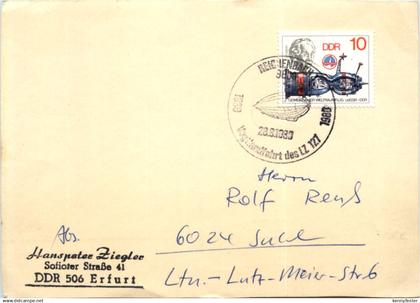 DDR 10
GEMEINSAMER WELTRAUMFLUG UdSSR-DDR
REICHENBACH
9800
1930 1980
28.9.1980
Vogtlandfahrt des LZ 127
Herrn
Rolf Renß
Abs.
Hanspeter Ziegler
Sofioter Straße 41
DDR 506 Erfurt
6024 Suhl
Ltn.-Lutz-Meier-Str. 6